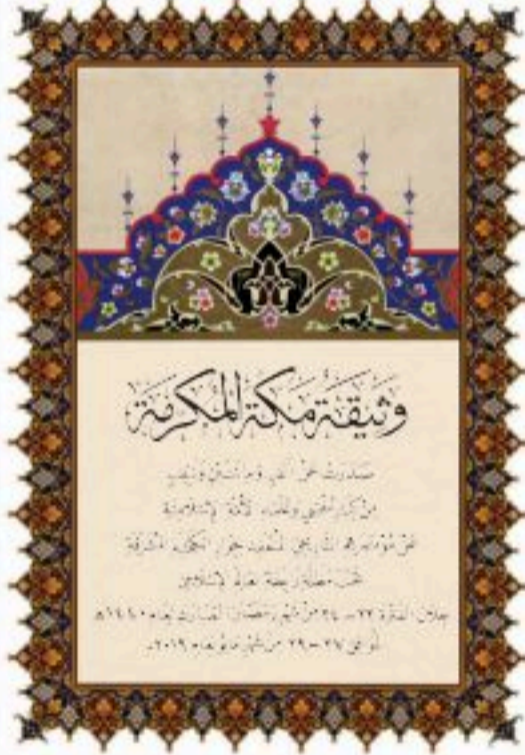 وثيقة مكة المكرمة
صدرت عن ألف ومائتي
من كبار مفتي وعلماء الأمة الإسلامية
في مؤتمرهم التاريخي المنعقد جوار الكعبة المشرفة
تحت مظلة رابطة العالم الإسلامي
خلال الفترة ٢٢ - ٢٤ من شهر رمضان المبارك لعام ١٤٤٠هـ
الموافق ٢٧ - ٢٩ من شهر مايو لعام ٢٠١٩م